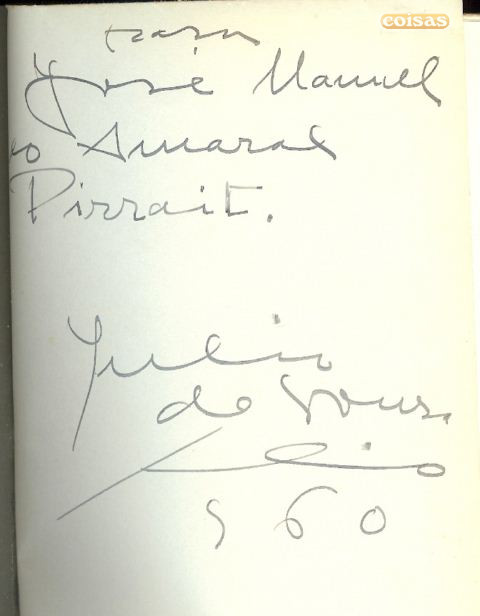 coisas
para
José Manuel
do Amaral
Pirrait.
Julio
de Sousa
960